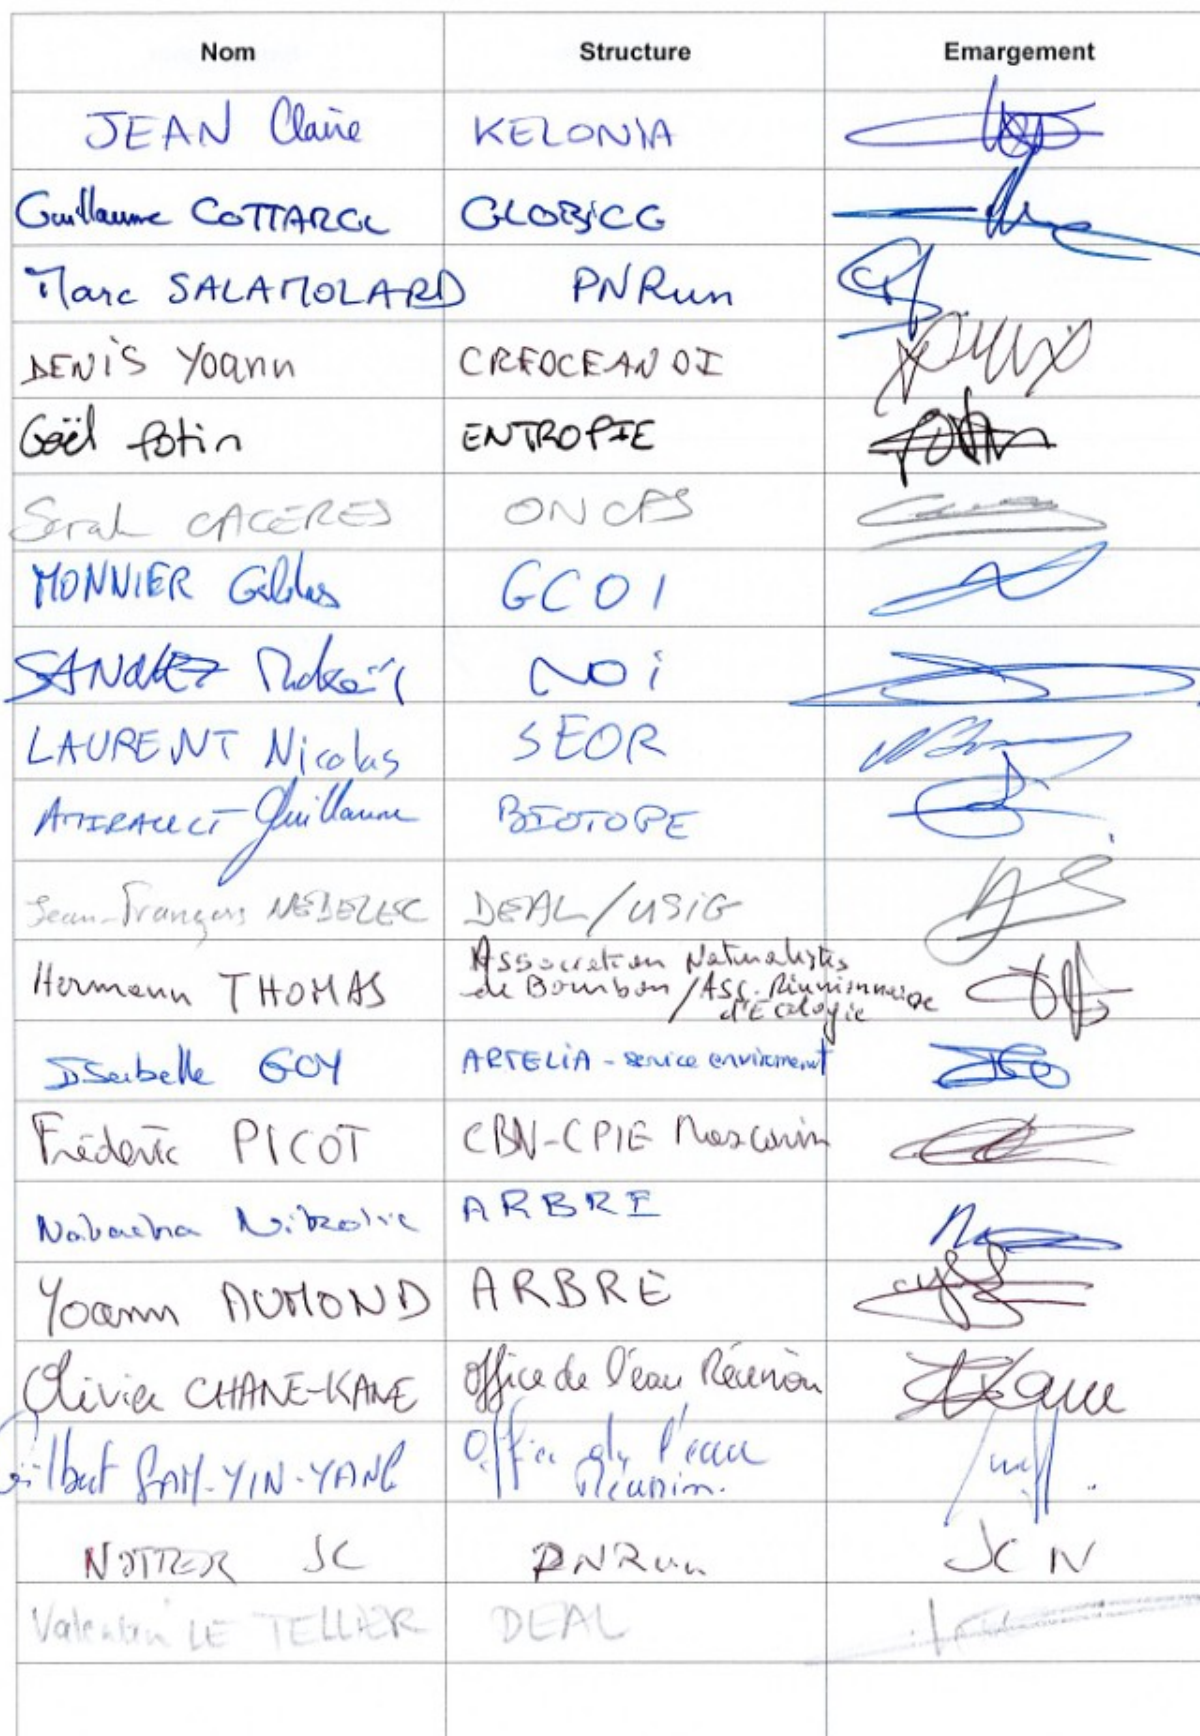 Nom Structure Emargement
JEAN Claire KELONIA
Guillaume COTTAREL GLOBICE
Marc SALAMOLARD PNRun
DENIS Yoann CREOCEAN OI
Gaël Potin ENTROPIE
Sarah CACERES ONCFS
MONNIER Gildas GCOI
SANCHEZ Mickaël NOI
LAURENT Nicolas SEOR
Guillaume BIOTOPE
Jean-François NEDELEC DEAL/USIG
Hermann THOMAS Association Naturalistes
de Bourbon /Ass. Réunionnaise
d'Ecologie
Isabelle GOY ARTELIA - service environnement
Frédéric PICOT CBN-CPIE Mascarin
Natacha Nikolic ARBRE
Yoann AUMOND ARBRE
Olivier CHANE-KANE Office de l'eau Réunion
Gilbert SAM-YIN-YANG Office de l'eau
Réunion.
NOTTER JC PNRun JCN
Valentin LE TELLIER DEAL